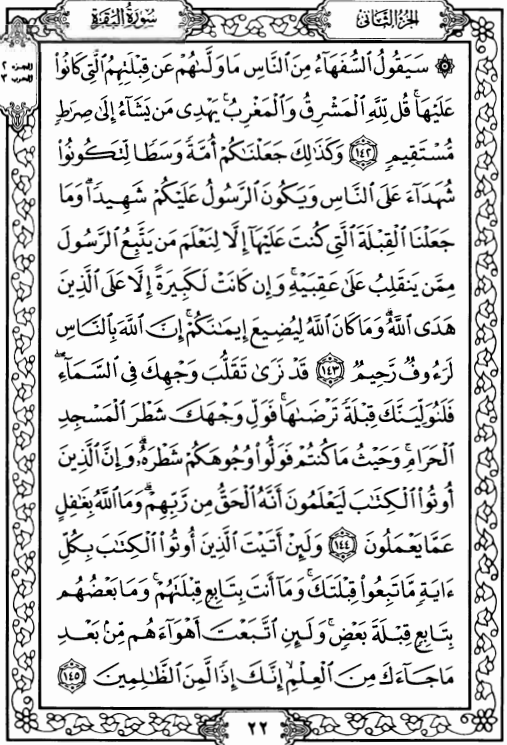 سُورَةُ البَقَرَةِ
الجُزءُ الثَّانِى
الجزء ٢
الحزب ٣
۞ سَيَقُولُ ٱلسُّفَهَآءُ مِنَ ٱلنَّاسِ مَا وَلَّىٰهُمْ عَن قِبْلَتِهِمُ ٱلَّتِى كَانُوا۟
عَلَيْهَا ۚ قُل لِّلَّهِ ٱلْمَشْرِقُ وَٱلْمَغْرِبُ ۚ يَهْدِى مَن يَشَآءُ إِلَىٰ صِرَٰطٍ
مُّسْتَقِيمٍ ﴿١٤٢﴾ وَكَذَٰلِكَ جَعَلْنَٰكُمْ أُمَّةً وَسَطًا لِّتَكُونُوا۟
شُهَدَآءَ عَلَى ٱلنَّاسِ وَيَكُونَ ٱلرَّسُولُ عَلَيْكُمْ شَهِيدًا ۗ وَمَا
جَعَلْنَا ٱلْقِبْلَةَ ٱلَّتِى كُنتَ عَلَيْهَآ إِلَّا لِنَعْلَمَ مَن يَتَّبِعُ ٱلرَّسُولَ
مِمَّن يَنقَلِبُ عَلَىٰ عَقِبَيْهِ ۚ وَإِن كَانَتْ لَكَبِيرَةً إِلَّا عَلَى ٱلَّذِينَ
هَدَى ٱللَّهُ ۗ وَمَا كَانَ ٱللَّهُ لِيُضِيعَ إِيمَٰنَكُمْ ۚ إِنَّ ٱللَّهَ بِٱلنَّاسِ
لَرَءُوفٌ رَّحِيمٌ ﴿١٤٣﴾ قَدْ نَرَىٰ تَقَلُّبَ وَجْهِكَ فِى ٱلسَّمَآءِ ۖ
فَلَنُوَلِّيَنَّكَ قِبْلَةً تَرْضَىٰهَا ۚ فَوَلِّ وَجْهَكَ شَطْرَ ٱلْمَسْجِدِ
ٱلْحَرَامِ ۚ وَحَيْثُ مَا كُنتُمْ فَوَلُّوا۟ وُجُوهَكُمْ شَطْرَهُۥ ۗ وَإِنَّ ٱلَّذِينَ
أُوتُوا۟ ٱلْكِتَٰبَ لَيَعْلَمُونَ أَنَّهُ ٱلْحَقُّ مِن رَّبِّهِمْ ۗ وَمَا ٱللَّهُ بِغَٰفِلٍ
عَمَّا يَعْمَلُونَ ﴿١٤٤﴾ وَلَئِنْ أَتَيْتَ ٱلَّذِينَ أُوتُوا۟ ٱلْكِتَٰبَ بِكُلِّ
ءَايَةٍ مَّا تَبِعُوا۟ قِبْلَتَكَ ۚ وَمَآ أَنتَ بِتَابِعٍ قِبْلَتَهُمْ ۚ وَمَا بَعْضُهُم
بِتَابِعٍ قِبْلَةَ بَعْضٍ ۚ وَلَئِنِ ٱتَّبَعْتَ أَهْوَآءَهُم مِّنۢ بَعْدِ
مَا جَآءَكَ مِنَ ٱلْعِلْمِ ۙ إِنَّكَ إِذًا لَّمِنَ ٱلظَّٰلِمِينَ ﴿١٤٥﴾
٢٢